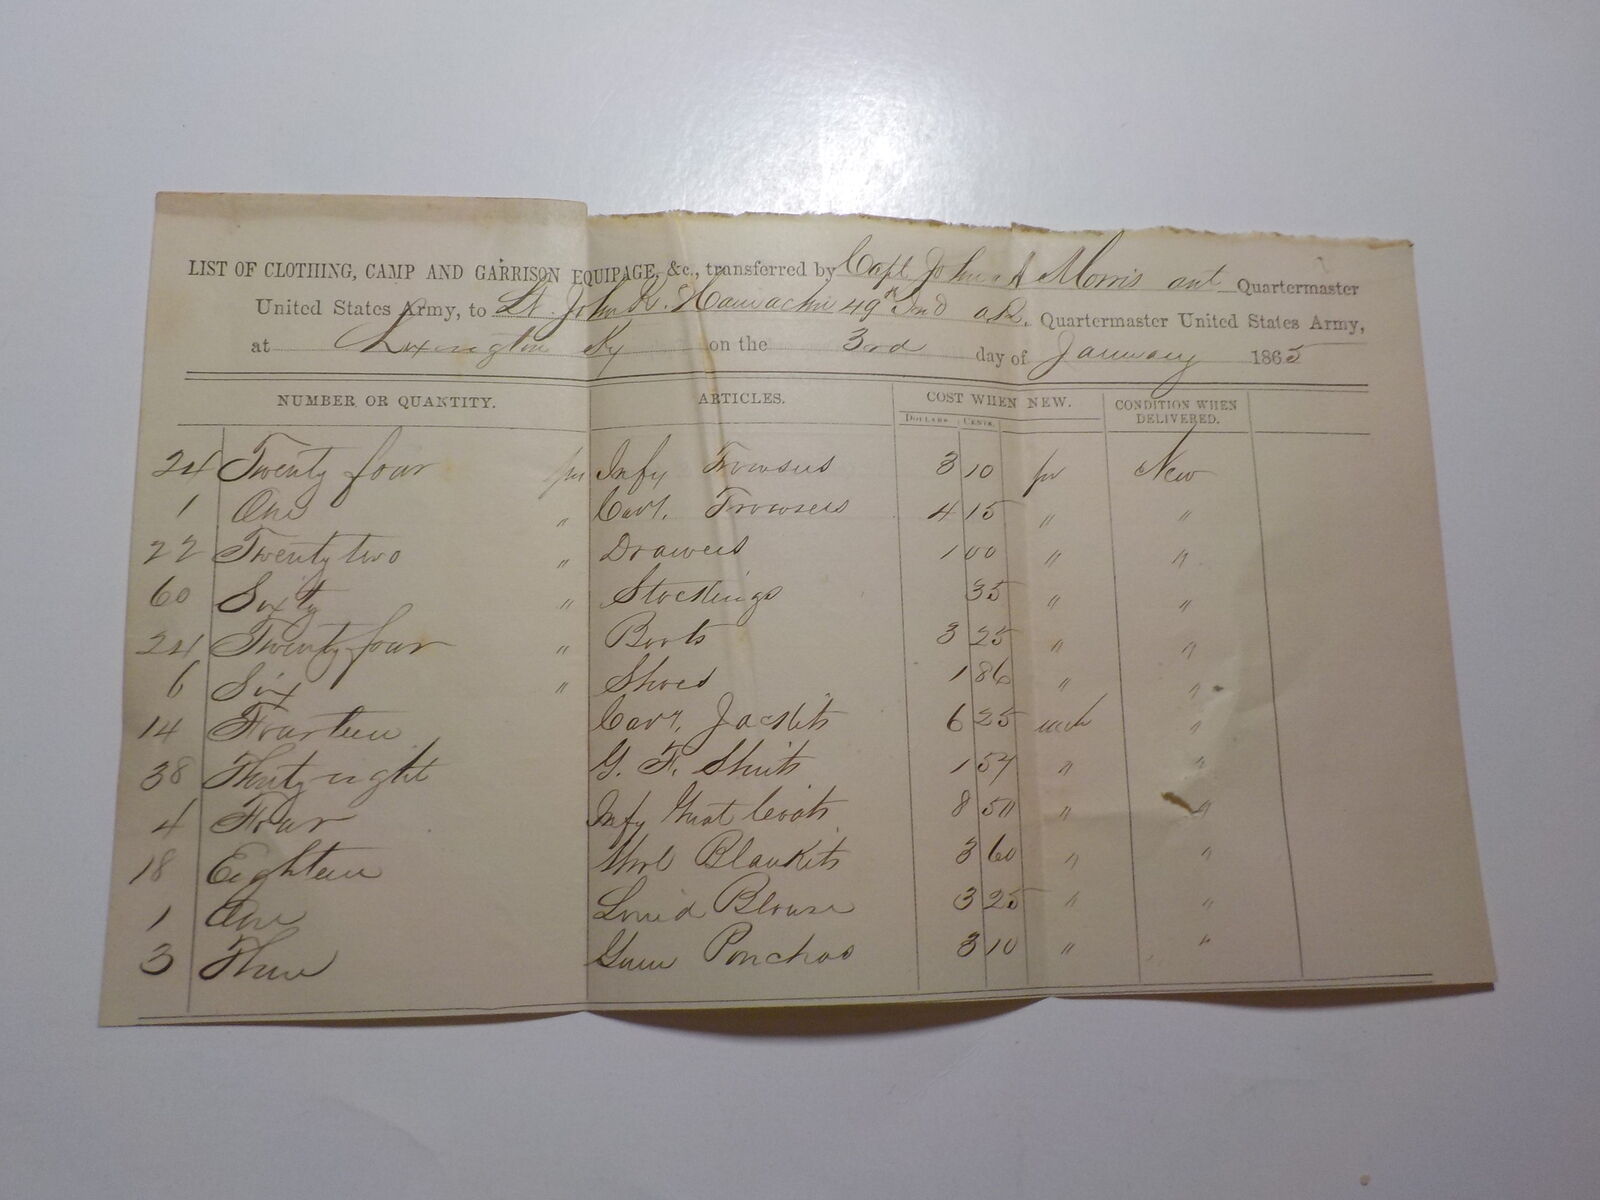 LIST OF CLOTHING, CAMP AND GARRISON EQUIPAGE, &c., transferred by Capt John A Morris Quartermaster
United States Army, to Lt. John 49th Ind a.Q. Quartermaster United States Army,
at Lexington Ky on the 3rd day of January 1865
NUMBER OR QUANTITY. ARTICLES. COST WHEN NEW. CONDITION WHEN DELIVERED.
DOLLARS CENTS.
24 Twenty four prs Infy Trowsers 3 10 pr New
1 One " Cavy. Trowsers 4 15 " "
22 Twenty two " Drawers 1 00 " "
60 Sixty " Stockings 35 " "
24 Twenty four " Boots 3 25 " "
6 Six " Shoes 1 86 " "
14 Fourteen Cavy. Jackets 6 25 each "
38 Thirty eight G. F. Shirts 1 54 " "
4 Four Infy Great Coats 8 50 " "
18 Eighteen Wool Blankets 3 60 " "
1 One Lined Blouse 3 25 " "
3 Three Gum Ponchos 3 10 " "